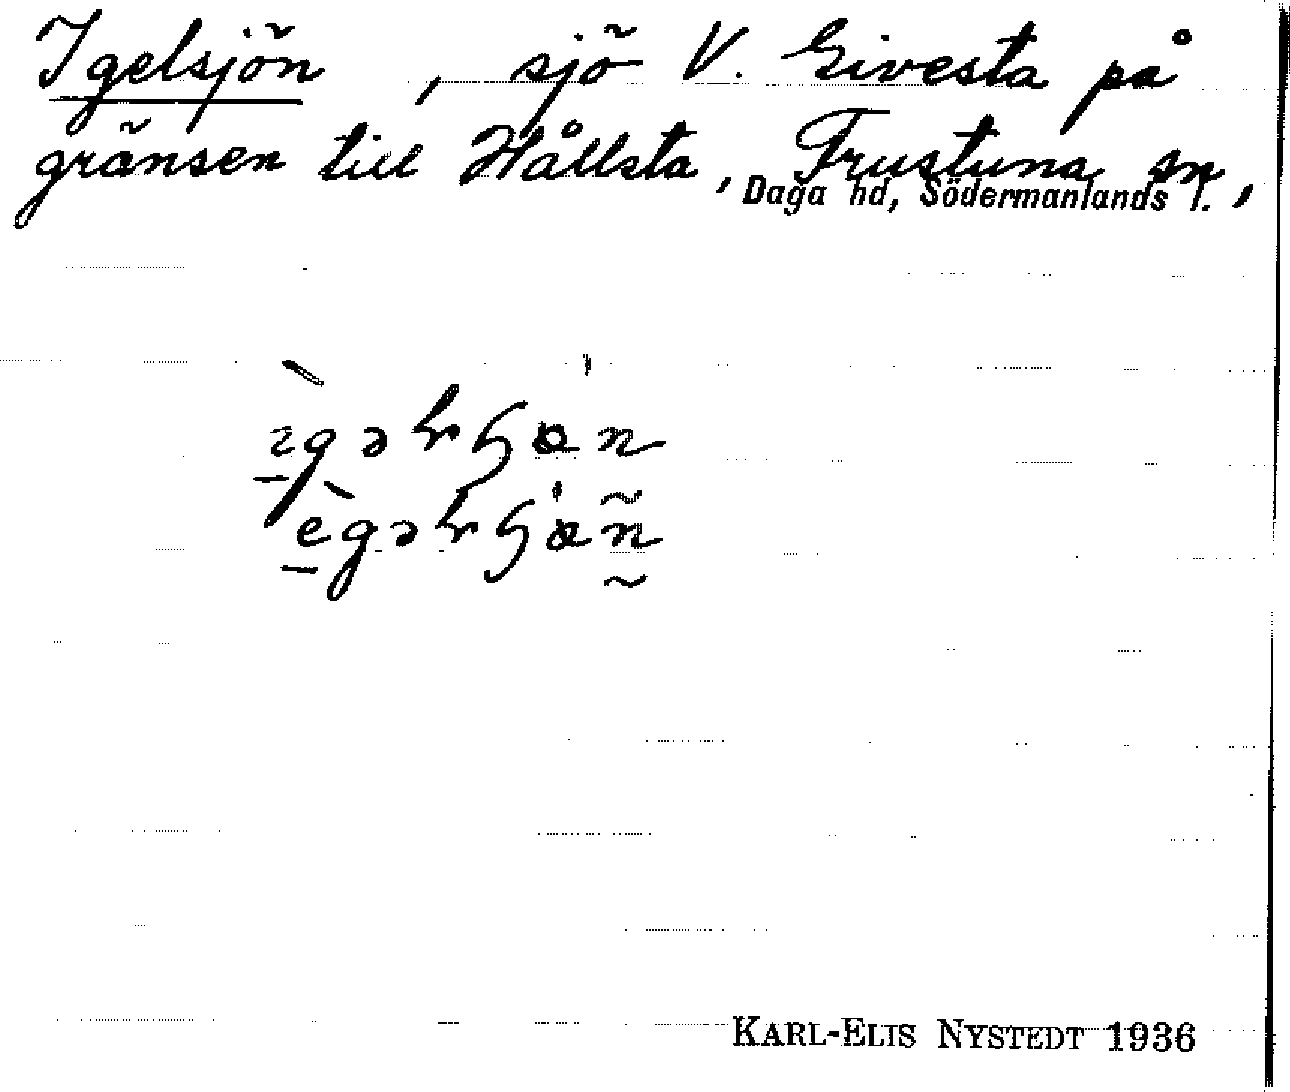 Igelsjön, sjö V. Givesta på
gränsen till Hållsta, Frustuna sn,
Daga hd, Södermanlands l.
KARL-ELIS NYSTEDT 1936